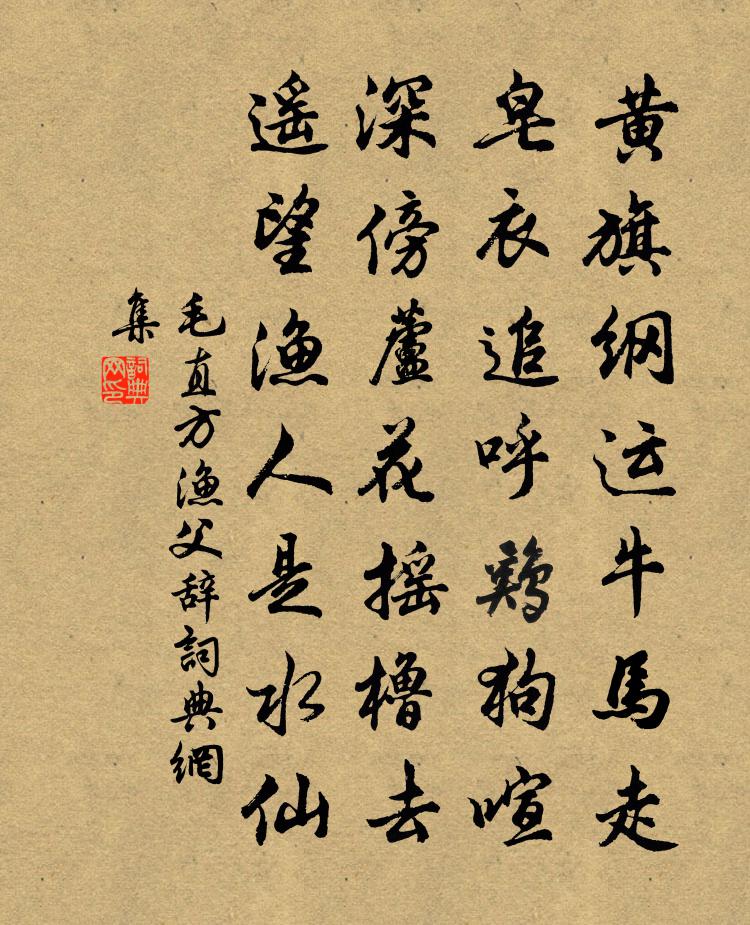 黄旗纲运牛馬走
皂衣追呼鷄狗喧
深傍蘆花摇櫓去
遥望渔人是水仙
毛直方渔父辞詞典網
集
詞典网印